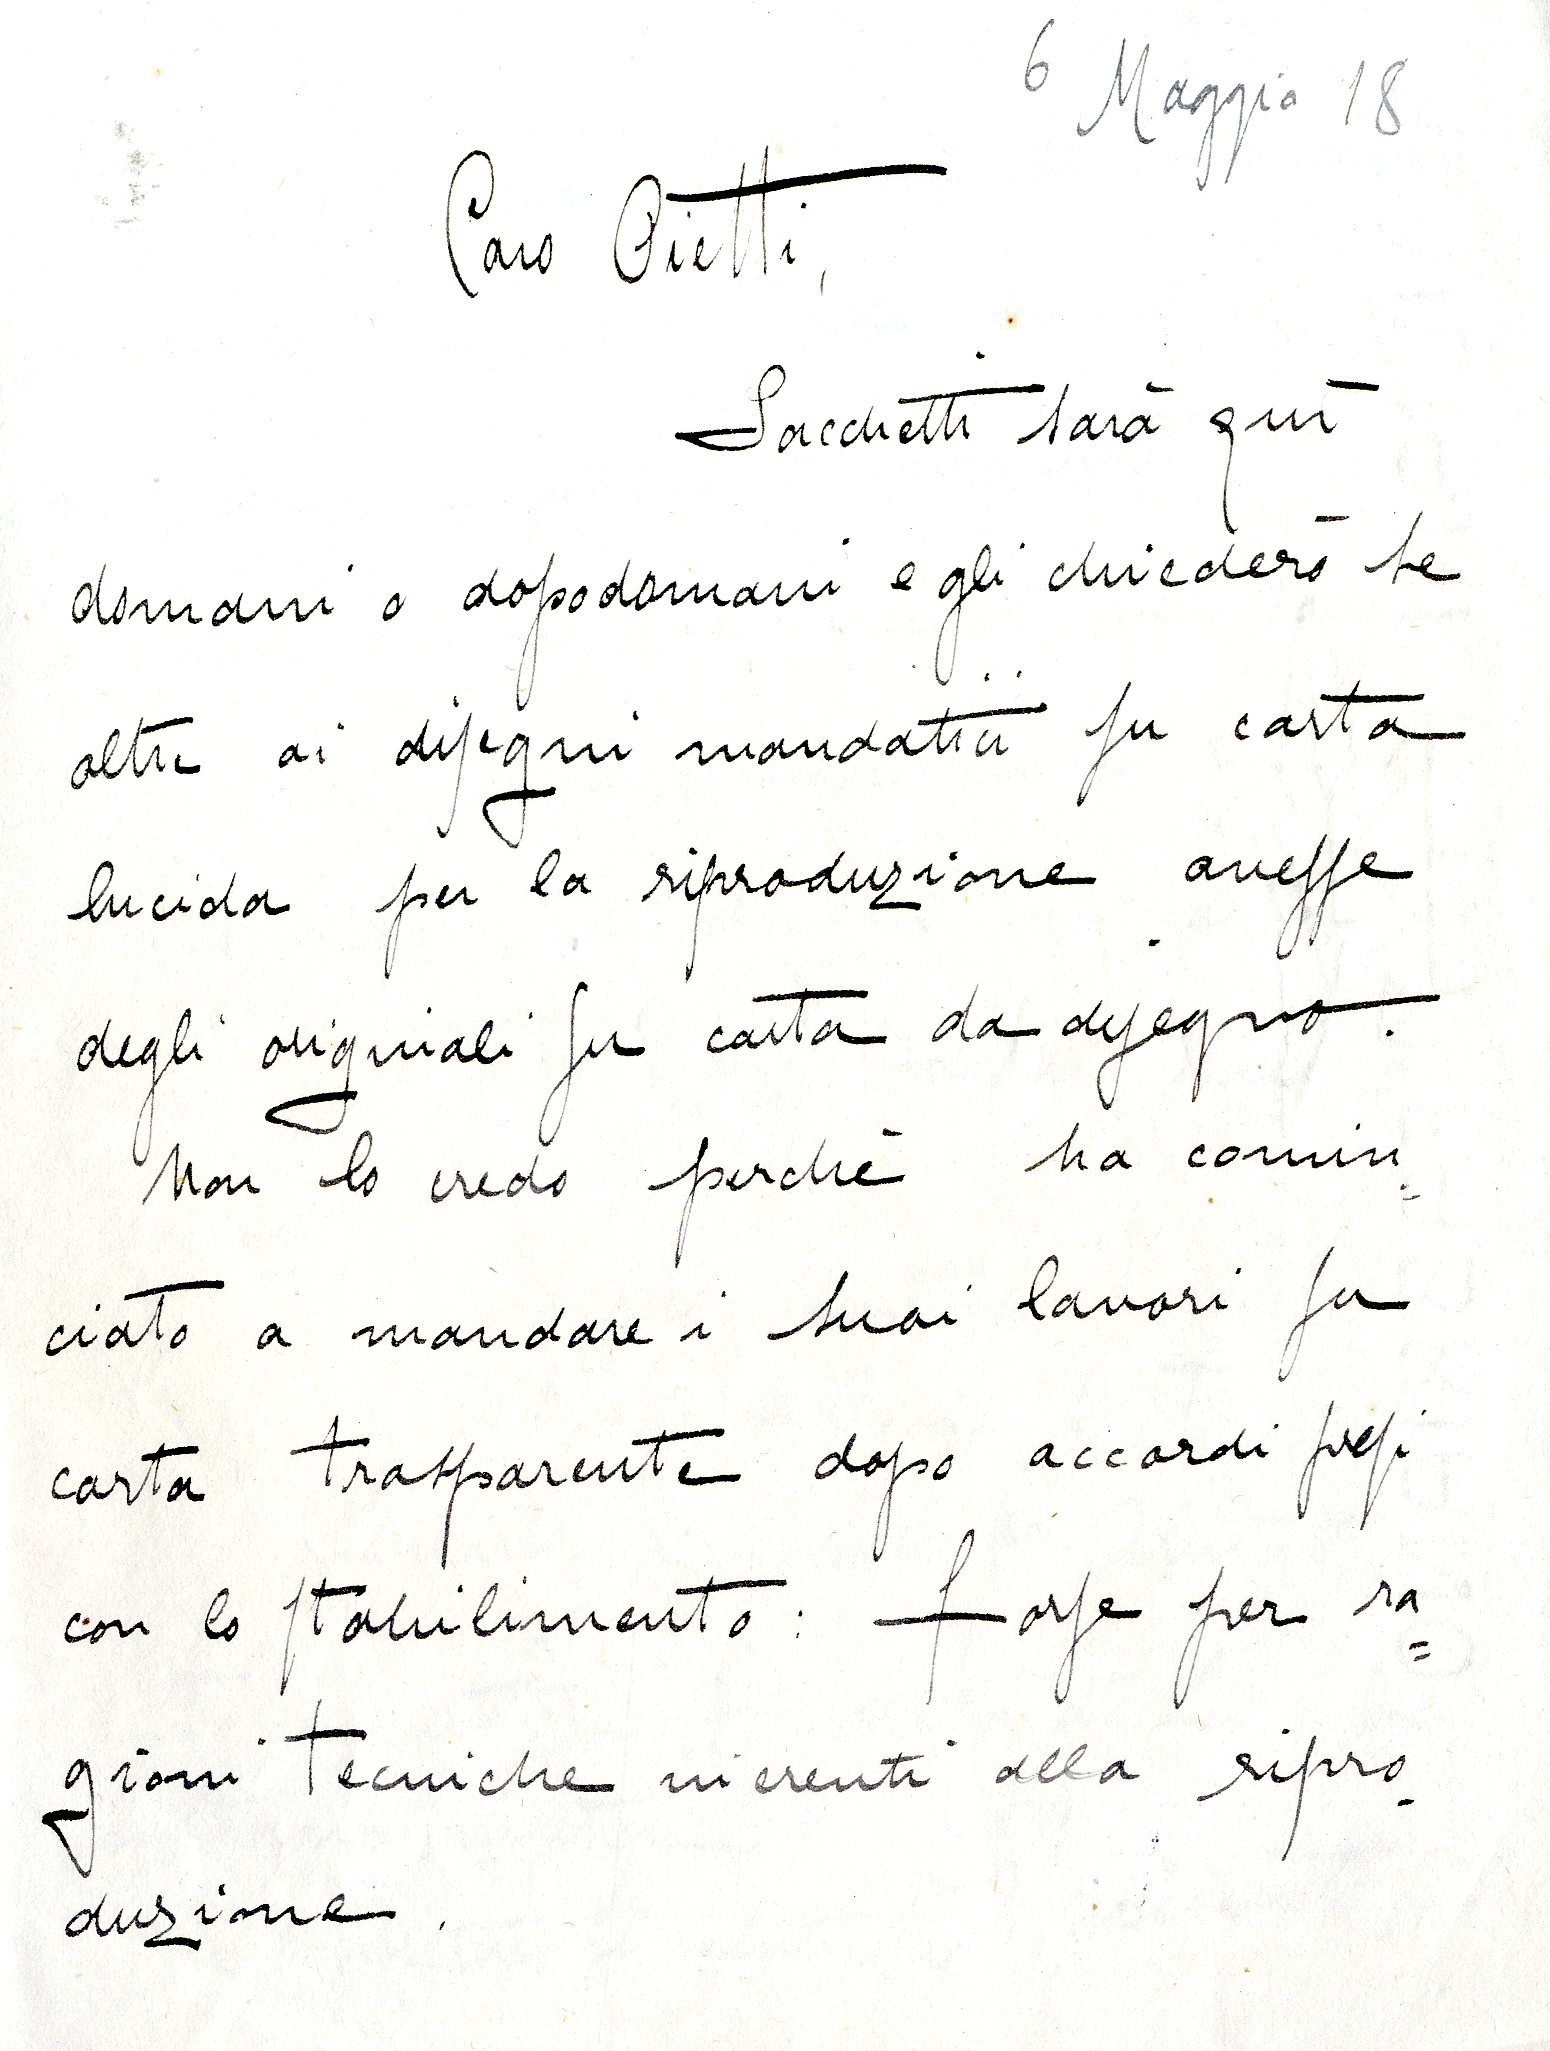 6 Maggio 18
Caro Pietti,
Sacchetti sarà quì
domani o dopodomani e gli chiederò se
oltre ai disegni mandatici su carta
lucida per la riproduzione avesse
degli originali su carta da disegno.
Non lo credo perchè ha comin-
ciato a mandare i suoi lavori su
carta trasparente dopo accordi presi
con lo stabilimento: forse per ra=
gioni tecniche inerenti alla ripro-
duzione.